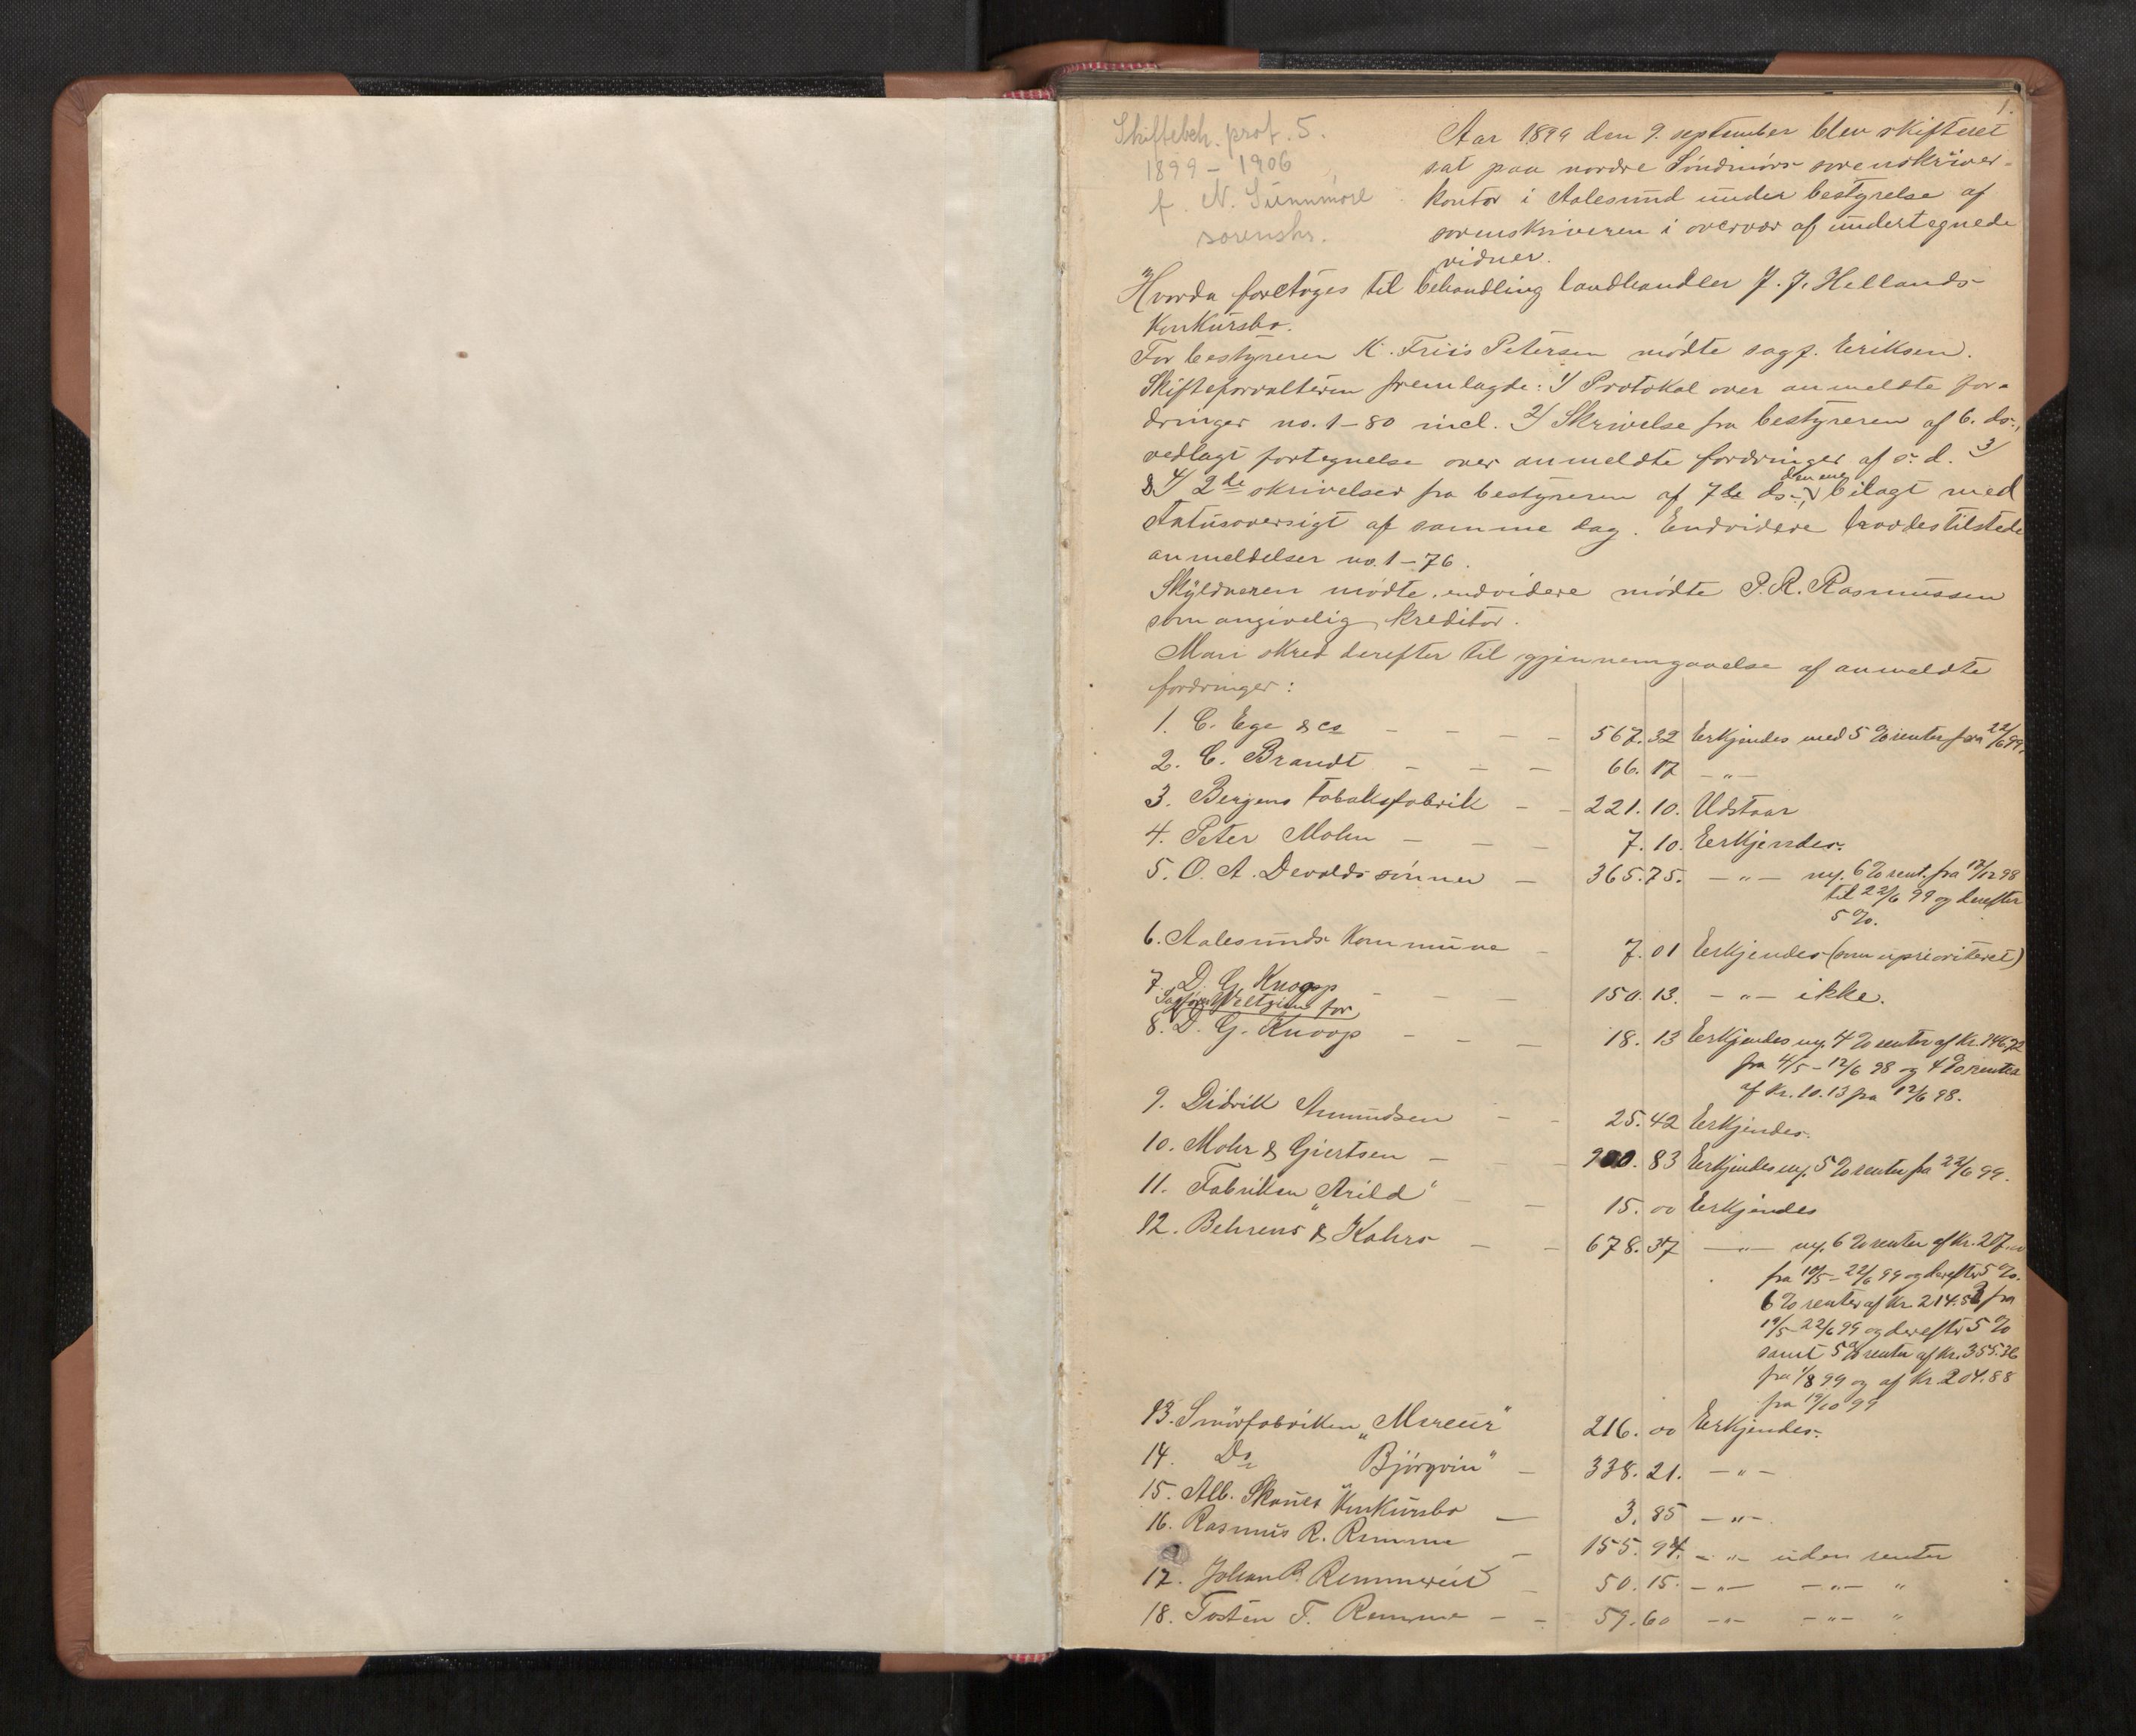 1.
Skiftebeh. prot. 5.
1899 – 1906
f. N. Sunnmöre
sorenskr.
Aar 1899 den 9. september blev skifteret
sat paa nordre Söndmörs sorenskriver-
kontor i Aalesund under bestyrelse af
sorenskriveren i overvær af undertegnede
vidner.
Hvorda foretoges til behandling landhandler J. J. Hellands
konkursbo.
For bestyreren K. Friis Petersen mödte sagf. Eriksen.
Skifteforvalteren fremlagde: 1/ Protokol over anmeldte for-
dringer no. 1 – 80 incl. 2/ Skrivelse fra bestyreren af 6. ds.,
vedlagt fortegnelse over anmeldte fordringer af s. d. 3/
& 4/ 2de skrivelser fra bestyreren af 7de ds., den ene bilagt med
Statusoversigt af samme dag. Endvidere havdes tilstede
anmeldelser no. 1 – 76.
Skyldneren mödte, endvidere mödte P. R. Rasmussen
som angivelig kreditor.
Man skred derefter til gjennemgaaelse af anmeldte
fordringer:
1. C. Ege & Co – – – – 567. 32 Erkjendes med 5 % renter fra 22/6 99.
2. C. Brandt – – – 66. 17 – „ –
3. Bergens tobaksfabrik – – 221. 10. Udstaar
4. Peter Mohn – – – 7. 10. Erkjendes.
5. O. A. Devolds sönner – 365. 75. – „ – m. 6 % rent. fra 17/12 98
til 22/6 99 og derefter
5 %.
6. Aalesunds kommune – 7. 01 Erkjendes (som uprioriteret)
7. D. G. Knoop – – – 150. 13. – „ – ikke.
Sagförer for
8. D. G. Knoop – – – 18. 13 Erkjendes m. 4 % renter af kr. 146.72
fra 4/5 – 12/6 98 og 4 % renter
af kr. 10.13 fra 12/6 98.
9. Didrik Amundsen – – 25. 42 Erkjendes.
10. Mohr & Giertsen – – 900. 83 Erkjendes m. 5 % renter fra 22/6 99.
11. Fabriken „Arild" – – 15. 00 Erkjendes
12. Behrens & Kahrs – – 678. 37 – „ – m. 6 % renter af kr. 207.
fra 10/5 – 22/6 99 og derefter 5 %.
6 % renter af kr. 214.52 fra
19/5 – 22/6 99 og derefter 5 %
samt 5 % renter af kr. 355.36
fra 1/8 99 og af kr 204.88
fra 19/10 99
13. Smörfabriken „Mercur" 216. 00 Erkjendes.
14. Do „Björgvin" – 338. 21. – „ –
15. Alb. Skoues konkursbo – 3. 85 – „ –
16. Rasmus R. Remme – 155. 94. – „ – uden renter
17. Johan P. – 50. 15. – „ – – „ – „
18. Tosten T. Remme – – 59. 60 – „ – – „ – „